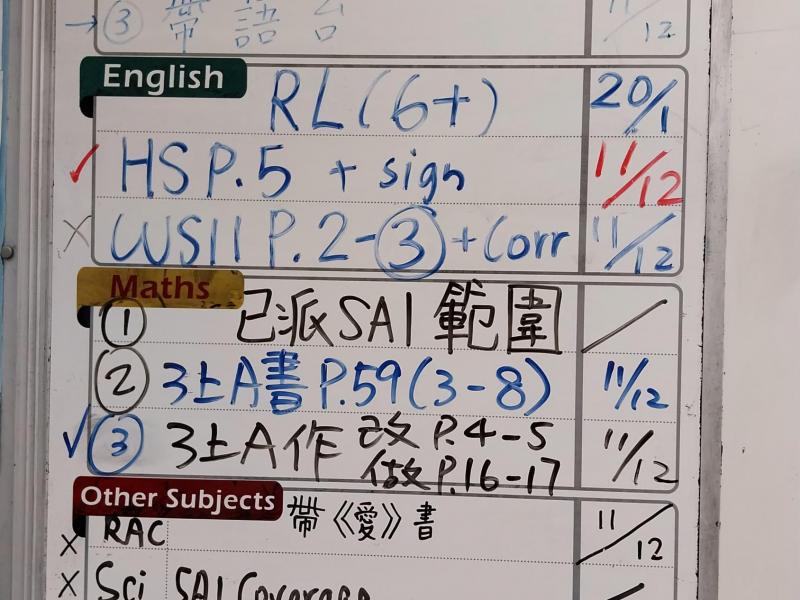 → ③ 帶 語 台 11/12
English
RL(6+) 20/1
✓ HS P.5 + sign 11/12
× WS11 P.2-③ + Corr 11/12
Maths
① 已派SA1範圍 /
② 3上A書 P.59(3-8) 11/12
✓ ③ 3上A作 改 P.4-5 11/12
做 P.16-17
Other Subjects
× RAC 帶《愛》書 11/12
× Sci SA1 Coverage /